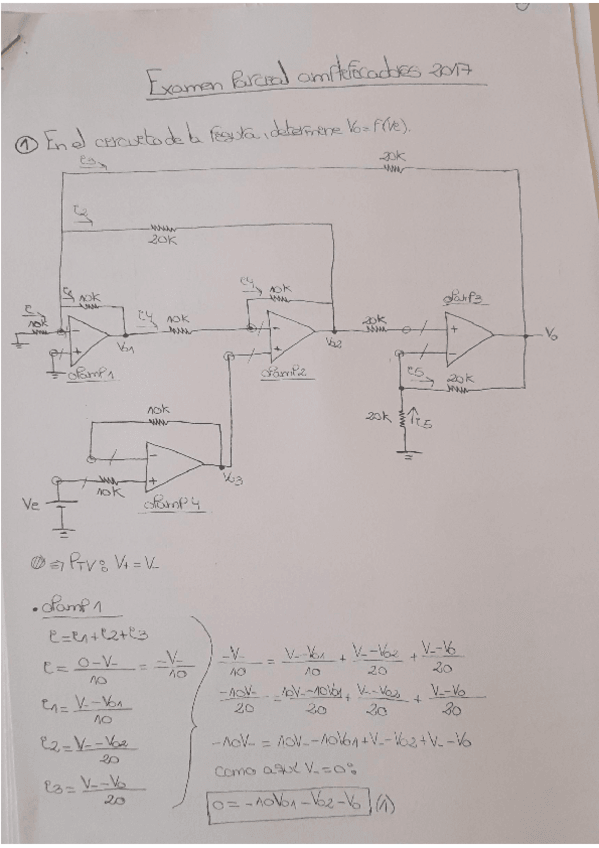 Examen Parcial amplificadores 2017
① En el circuito de la figura, determine Vo=f(Ve).
i3
20K
i2
20K
i
10K
i1
10K
i4
10K
i4
10K
20K
opamp3
Vo
Vo1
opamp1
Vo2
opamp2
i5
20K
20K
i5
10K
Vo3
10K
Ve
opamp4
⇒ PTV: V+ = V-
• opamp 1
i=i1+i2+i3
i= 0-V-/10 = -V-/10
i1= V- -Vo1/10
i2= V- -Vo2/20
i3= V- -Vo/20
-V-/10 = V- -Vo1/10 + V- -Vo2/20 + V- -Vo/20
-10V-/20 = 10V- -10Vo1/20 + V- -Vo2/20 + V- -Vo/20
-10V- = 10V- -10Vo1+V- -Vo2+V- -Vo
como aquí V-=0:
0=-10Vo1-Vo2-Vo (1)